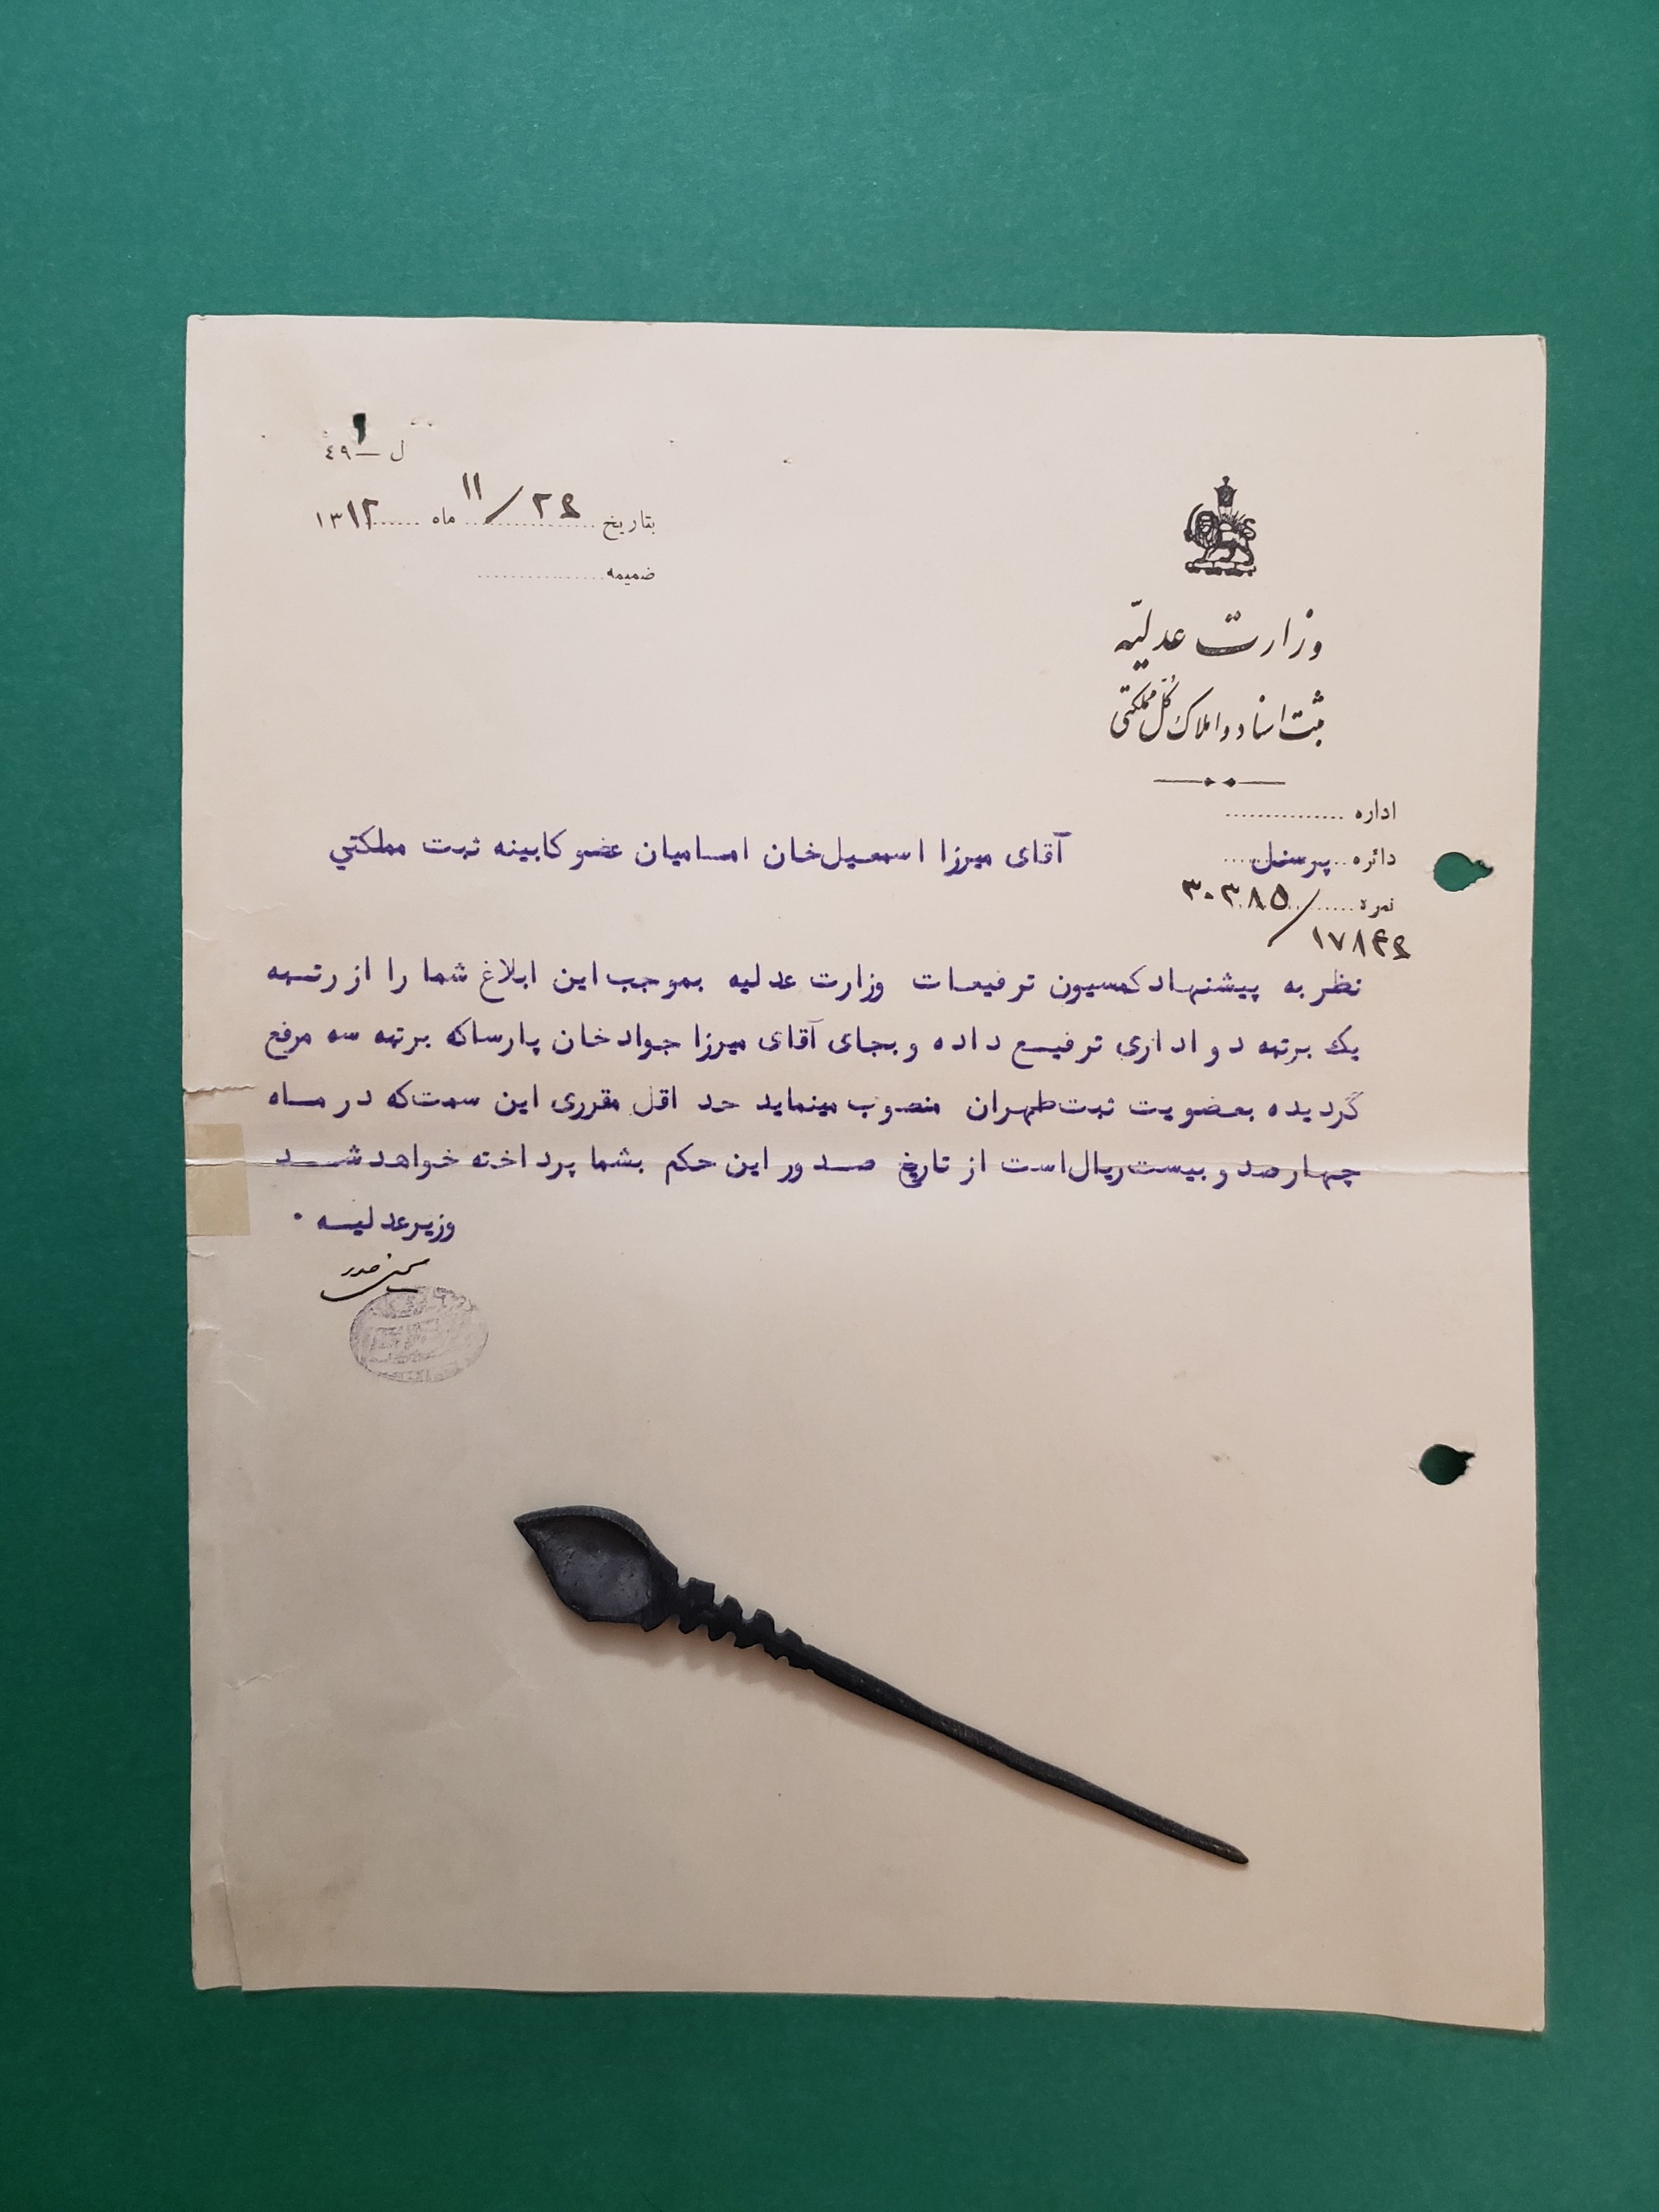 ل — ٤٩
بتاریخ ۲۴/۱۱ ماه ۱۳۱۲
ضمیمه
وزارت عدلیّه
ثبت اسناد و املاک کلّ مملکتی
اداره
دائره پرسنل
آقای میرزا اسمعیل‌خان امسامیان عضو کابینه ثبت مملکتي
نمره ۳۰۳۸۵/
۱۷۸۴۴
نظر به پیشنهاد کمسیون ترفیعات وزارت عدلیه بموجب این ابلاغ شما را از رتبه
یک برتبه دو اداری ترفیع داده و بجای آقای میرزا جواد خان پارسا که برتبه سه مرفع
گردیده بعضویت ثبت طهران منصوب مینماید حد اقل مقرری این سمت که در ماه
چهارصد و بیست ریال است از تاریخ صدور این حکم بشما پرداخته خواهد شد
وزیر عدلیه ۰